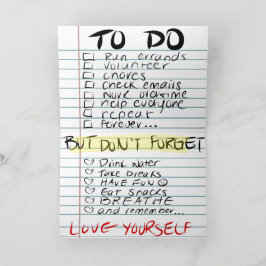 TO DO
Run errands
volunteer
chores
check emails
work overtime
help everyone
repeat
forever...
BUT DON'T FORGET
Drink water
Take breaks
HAVE FUN ☺
Eat snacks
BREATHE
and remember...
LOVE YOURSELF